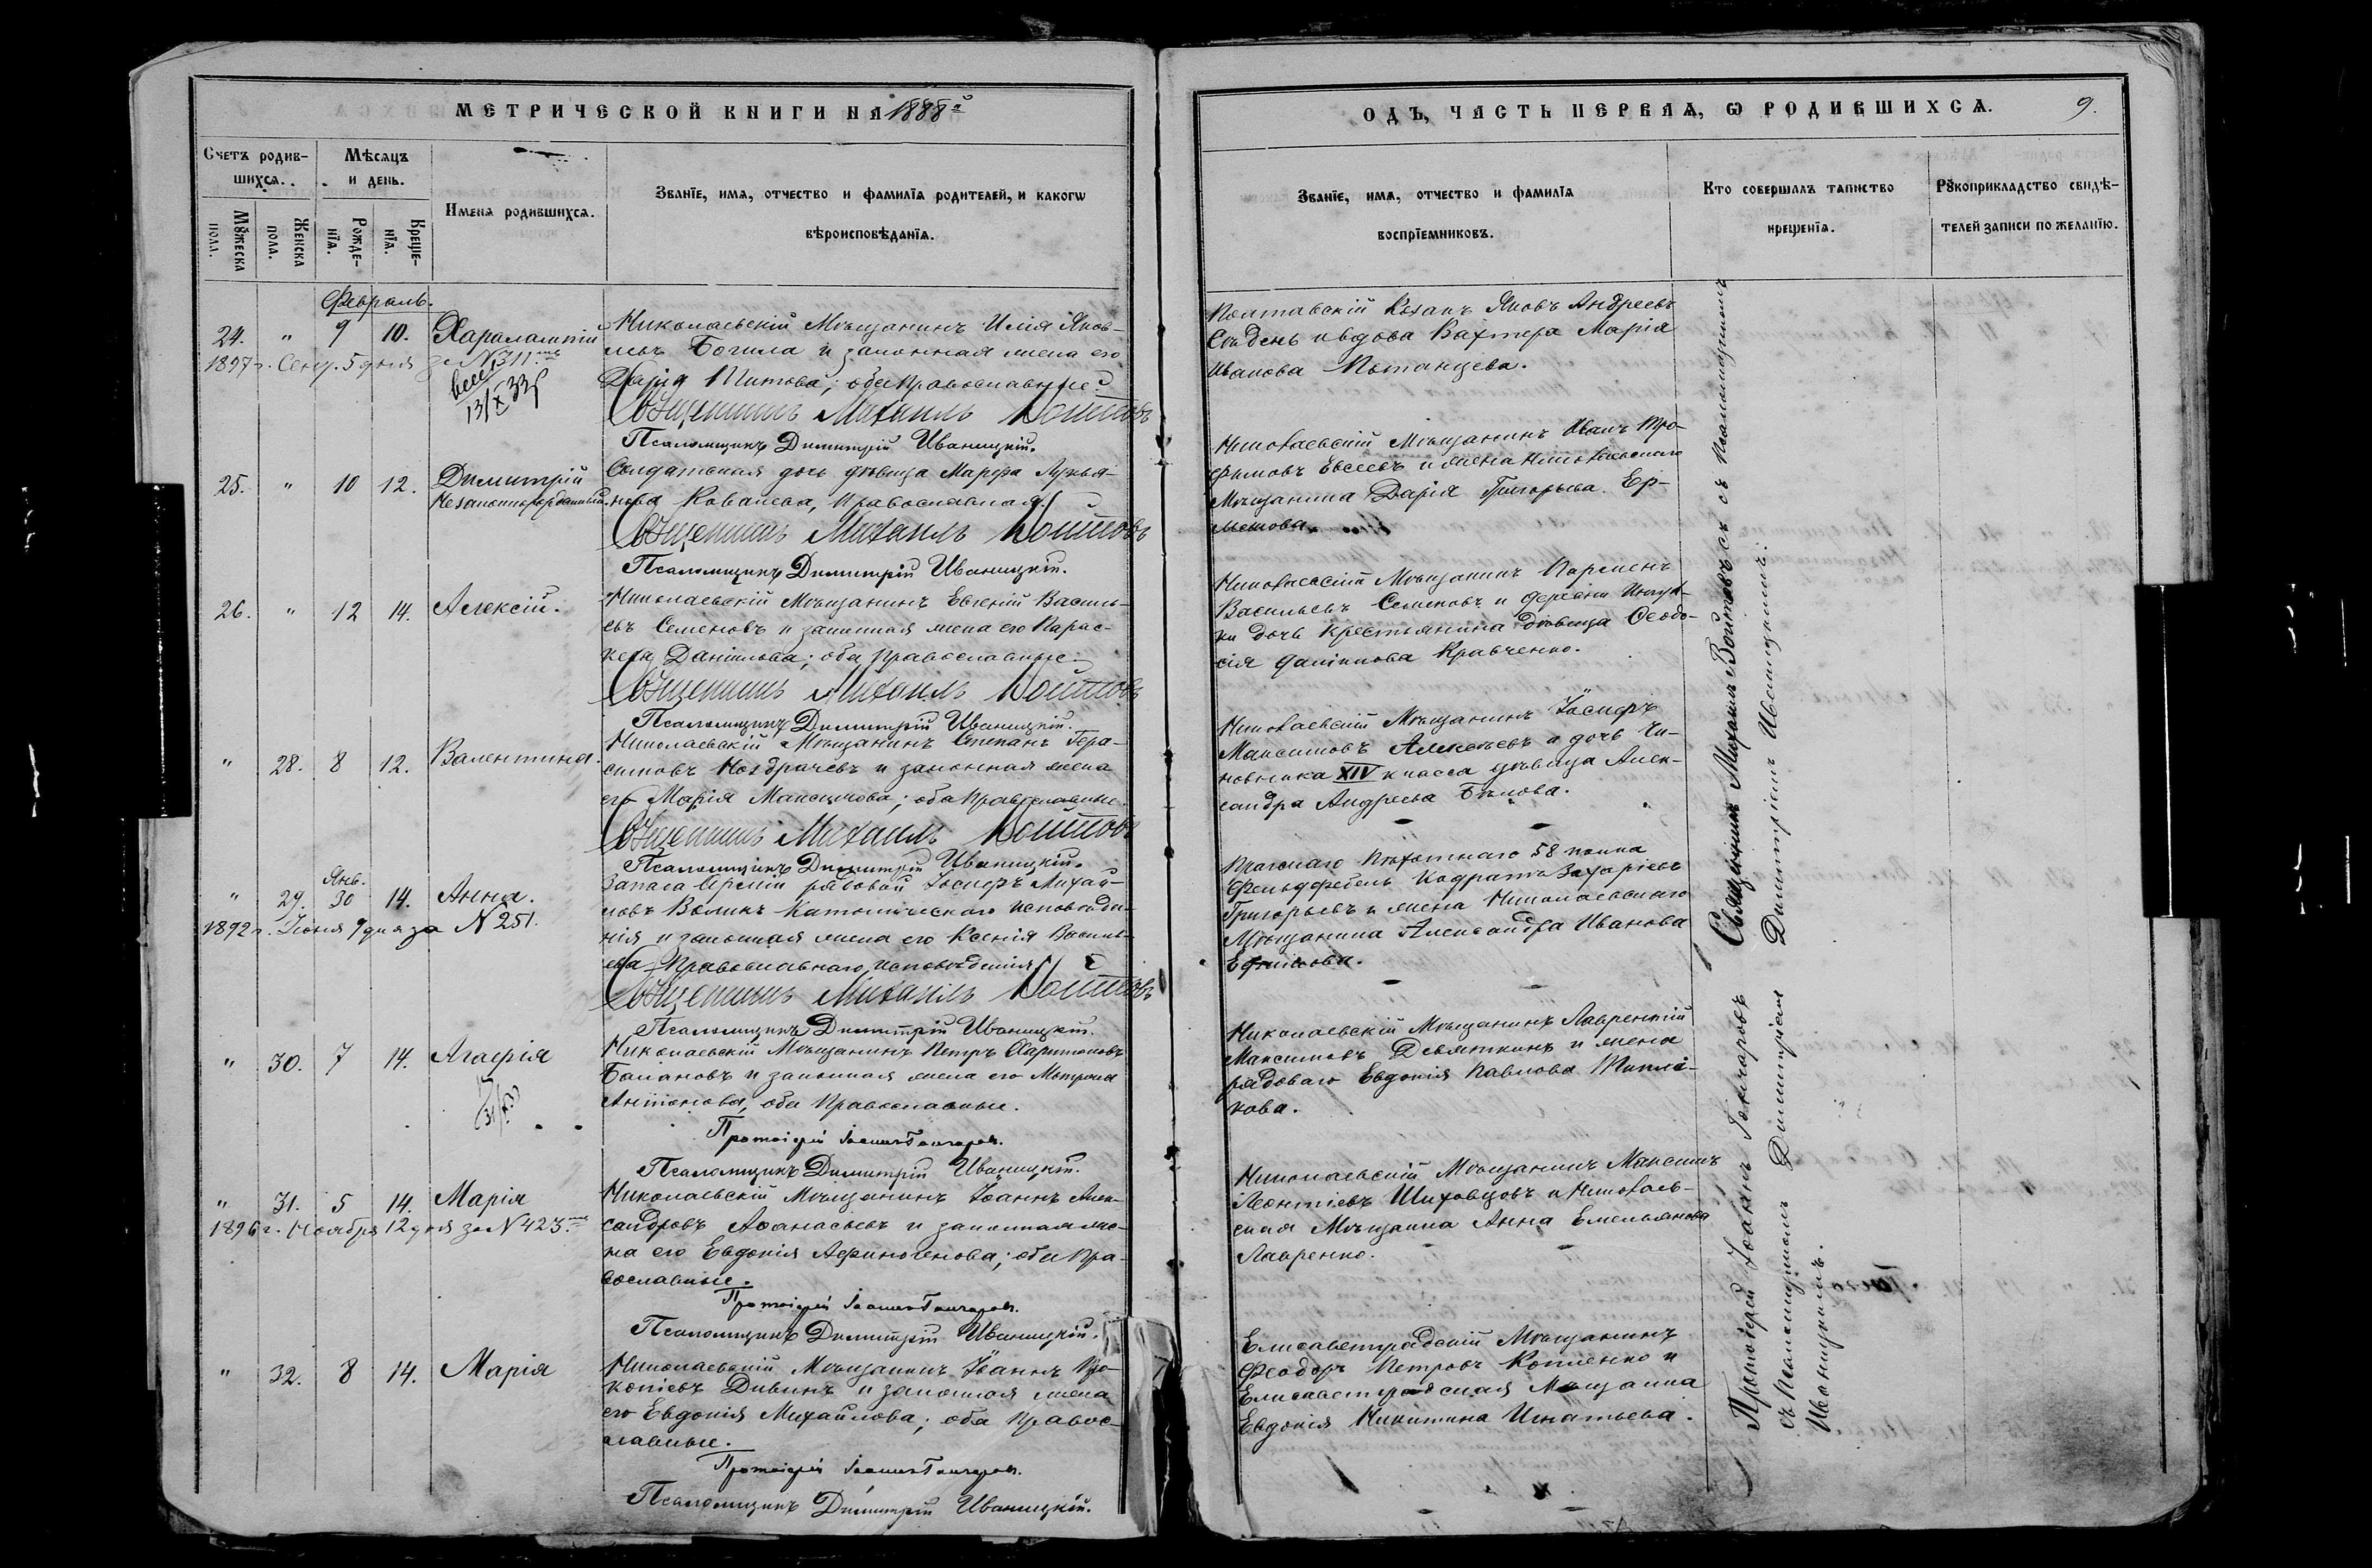 МЕТРИЧЕСКОЙ КНИГИ НА 1888й
Счетъ родившихся.
Мѣсяцъ и день.
Имена родившихся.
Званіе, имя, отчество и фамилія родителей, и какогѡ
вѣроисповѣданія.
Мꙋжеска пола.
Женска пола.
Рожденія.
Крещенія.
Февраль.
24. " 9 10. Харалампій
1897 г. Сент. 5 дня за № 311
13/X 33
Николаевскій Мѣщанинъ Илія Яков-
левъ Богила и законная жена его
Дарія Титова; оба православные.
Священникъ Михаилъ Войтовъ
Псаломщикъ Димитрій Иваницкій.
25. " 10 12. Димитрій
Незаконнорожденный.
Солдатская дочь дѣвица Марфа Лукья-
нова Ковалева, Православная.
Священникъ Михаилъ Войтовъ
Псаломщикъ Димитрій Иваницкій.
26. " 12 14. Алексій.
Николаевскій Мѣщанинъ Евгеній Василь-
евъ Семеновъ и законная жена его Парас-
кева Даніилова; оба православные.
Священникъ Михаилъ Войтовъ
Псаломщикъ Димитрій Иваницкій.
" 28. 8 12. Валентина.
Николаевскій Мѣщанинъ Степанъ Гера-
симовъ Ноздрачевъ и законная жена
его Марія Максимова; оба православные.
Священникъ Михаилъ Войтовъ
Псаломщикъ Димитрій Иваницкій.
Янв.
" 29. 30 14. Анна.
1892 г. Іюня 9 дня за № 251.
Запаса Арміи рядовой Іосифъ Михай-
ловъ Волкъ Католическаго исповѣда-
нія и законная жена его Ксенія Василь-
ева Православнаго исповѣданія.
Священникъ Михаилъ Войтовъ
Псаломщикъ Димитрій Иваницкій.
" 30. 7 14. Агафія
Николаевскій Мѣщанинъ Петръ Харитоновъ
Балановъ и законная жена его Матрона
Антонова, оба православные.
Протоіерей Іоаннъ Гончаровъ.
Псаломщикъ Димитрій Иваницкій.
" 31. 5 14. Марія
1896 г. Ноября 12 дня за № 423.
Николаевскій Мѣщанинъ Іоаннъ Алек-
сандровъ Аѳанасьевъ и законная же-
на его Евдокія Афиногенова; оба пра-
вославные.
Протоіерей Іоаннъ Гончаровъ.
Псаломщикъ Димитрій Иваницкій.
" 32. 8 14. Марія
Николаевскій Мѣщанинъ Іоаннъ Про-
копіевъ Дивинъ и законная жена
его Евдокія Михайлова; оба правос-
лавные.
Протоіерей Іоаннъ Гончаровъ.
Псаломщикъ Димитрій Иваницкій.
ОДЪ, ЧАСТЬ ПЕРВАЯ, Ѡ РОДИВШИХСЯ. 9.
Званіе, имя, отчество и фамилія
воспріемниковъ.
Кто совершалъ таинство
крещенія.
Рꙋкоприкладство свидѣ-
телей записи по желанію.
Полтавскій Козакъ Яковъ Андреевъ
Сѣдень и вдова Вахтера Марія
Иванова Потанцева.
Николаевскій Мѣщанинъ Иванъ Тро-
фимовъ Евсеевъ и жена Николаевскаго
Мѣщанина Дарія Григорьева Ер-
Николаевскій Мѣщанинъ Парменъ
Васильевъ Семеновъ и деревни Ингул-
ки дочь крестьянина дѣвица Ѳеодо-
сія Даніилова Кравченко.
Николаевскій Мѣщанинъ Іосифъ
Максимовъ Алексѣевъ и дочь Чи-
новника XIV класса дѣвица Алек-
сандра Андреева Бѣлова.
Пражскаго Пѣхотнаго 58 полка
Фельдфебель Кодратъ Захаріевъ
Григорьевъ и жена Николаевскаго
Мѣщанина Александра Иванова
Ефимова.
Николаевскій Мѣщанинъ Лаврентій
Максимовъ Девяткинъ и жена
рядоваго Евдокія Павлова
кова.
Николаевскій Мѣщанинъ Максимъ
Леонтіевъ Шиховцовъ и Николаев-
ская Мѣщанка Анна Емельянова
Лавренко.
Елисаветградскій Мѣщанинъ
Ѳеодоръ Петровъ Копленко и
Елисаветградская Мѣщанка
Евдокія Никитина Игнатьева.
Священникъ Михаилъ Войтовъ съ Псаломщикомъ
Димитріемъ Иваницкимъ.
Протоіерей Іоаннъ Гончаровъ
съ Псаломщикомъ Димитріемъ
Иваницкимъ.